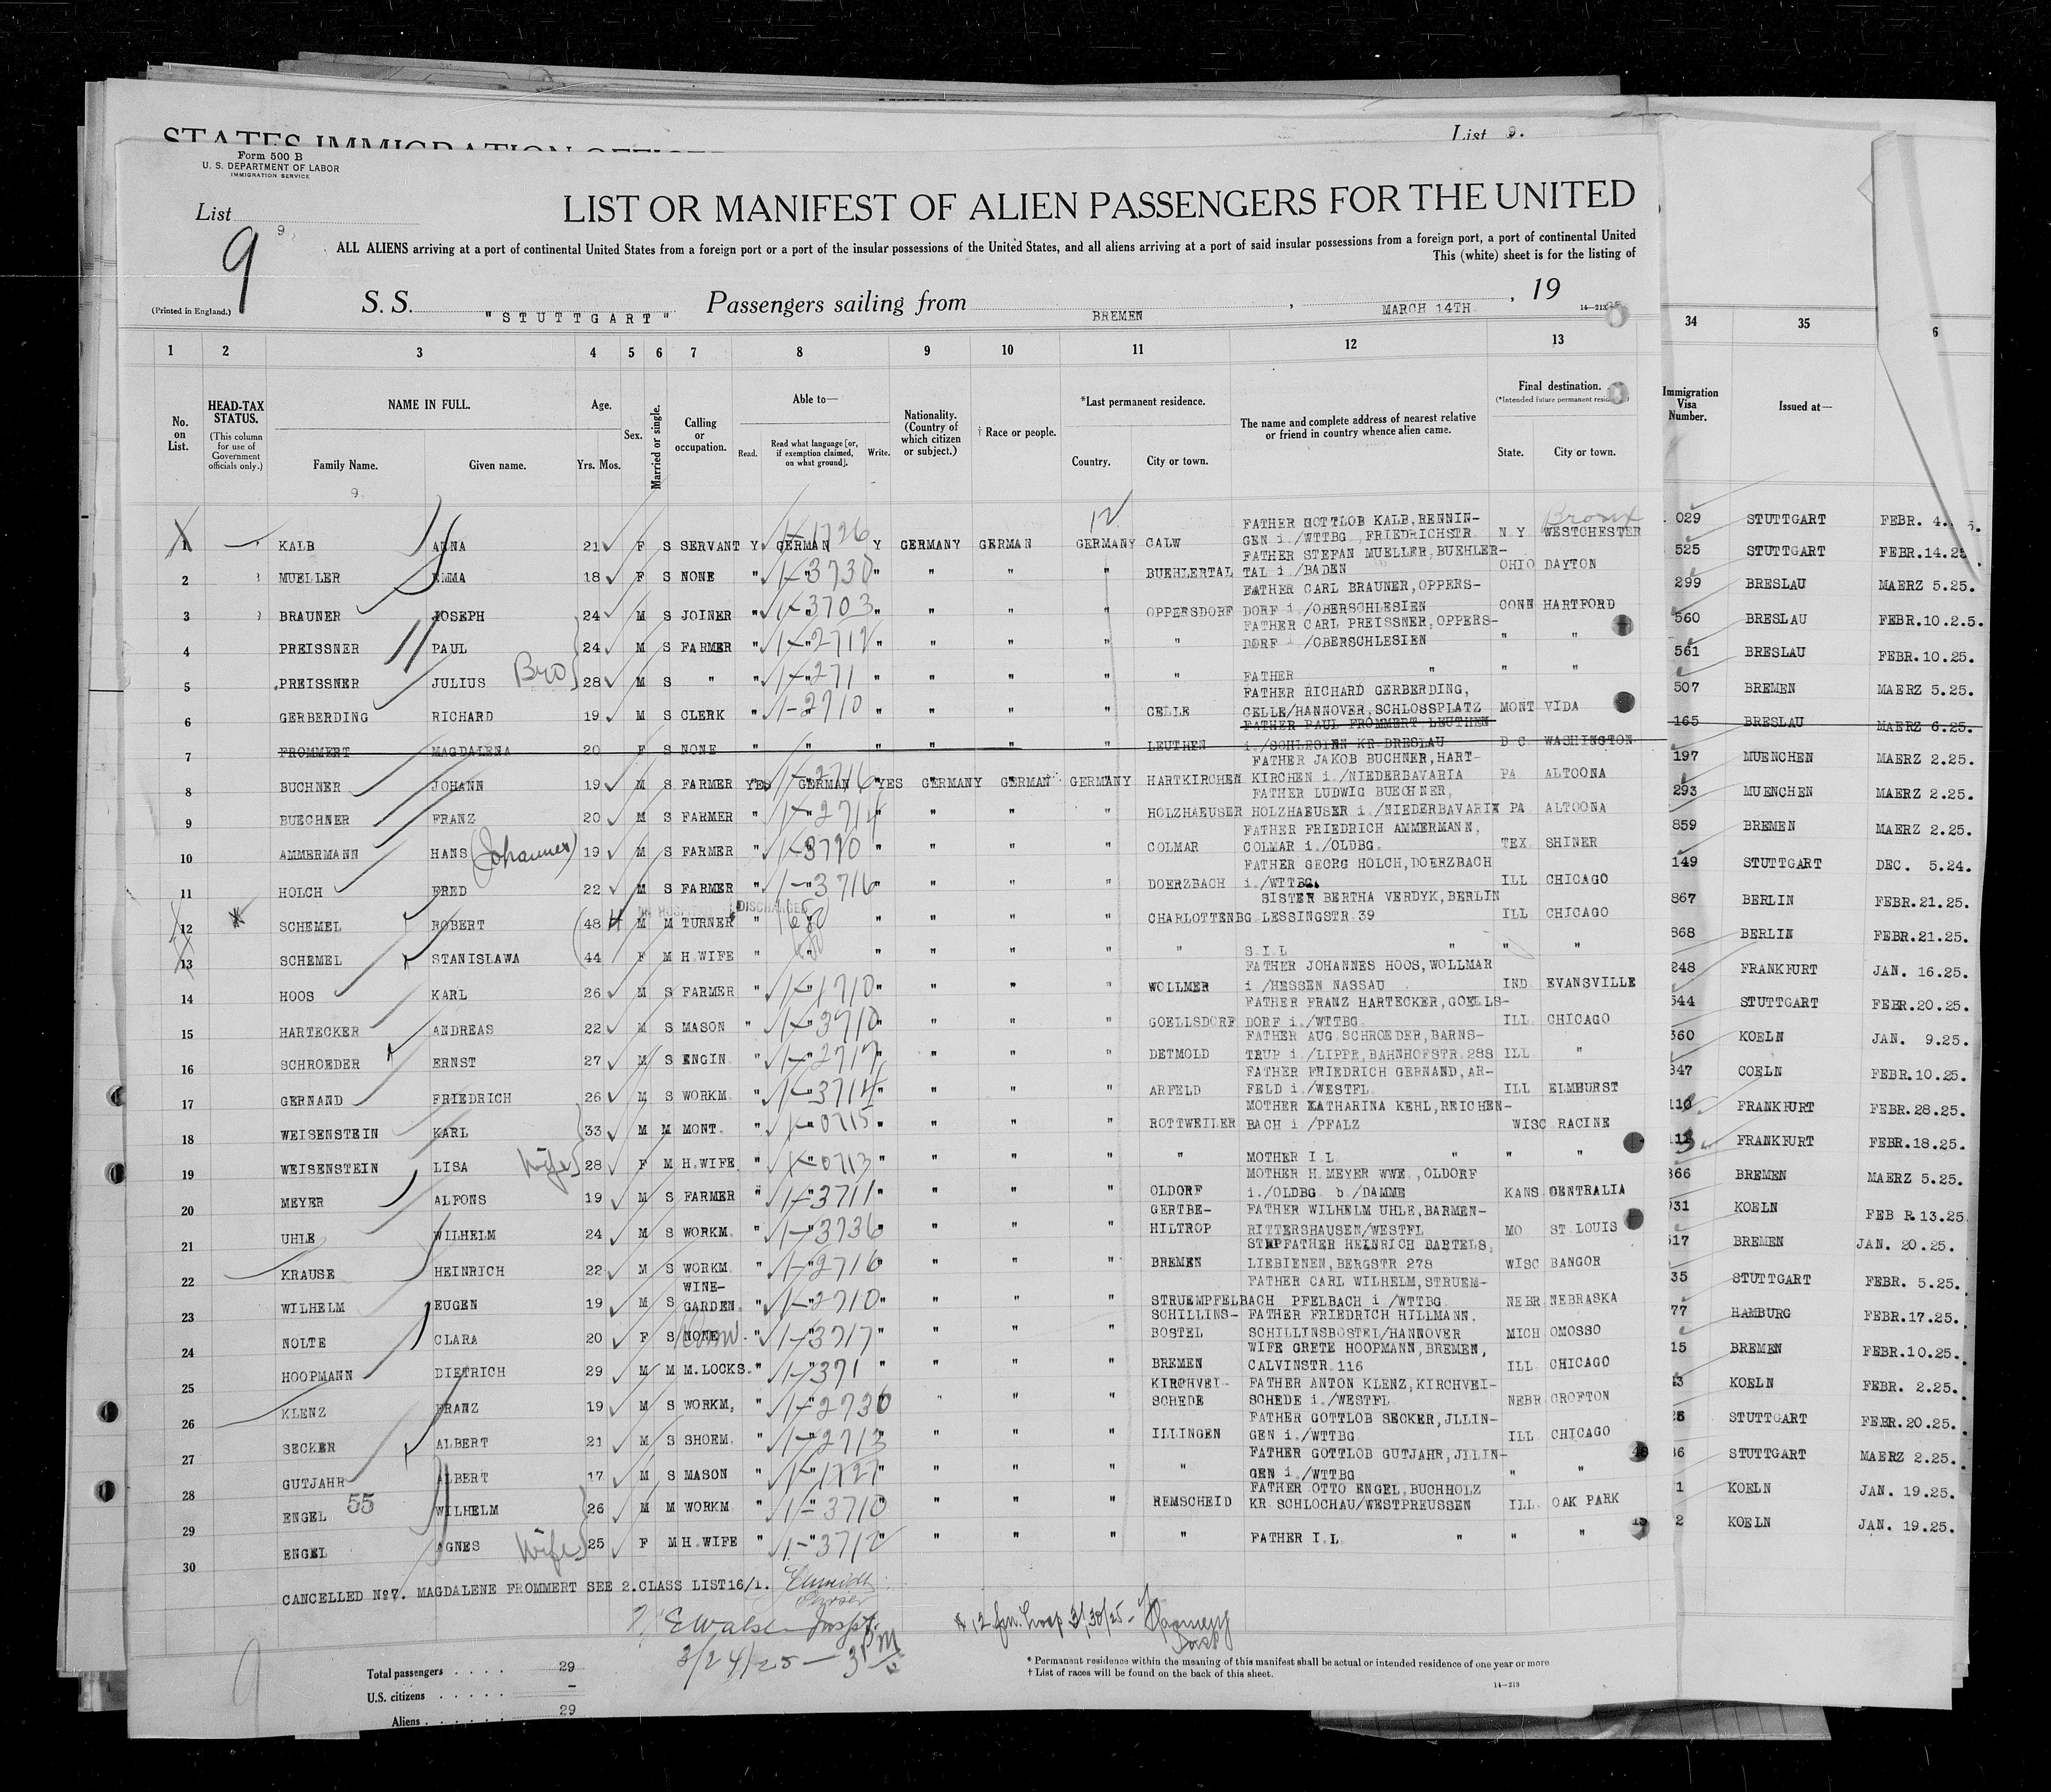 STATES IMMIGRATION
List 9.
Form 500 B
U. S. DEPARTMENT OF LABOR
IMMIGRATION SERVICE
List 9
9
LIST OR MANIFEST OF ALIEN PASSENGERS FOR THE UNITED
ALL ALIENS arriving at a port of continental United States from a foreign port or a port of the insular possessions of the United States, and all aliens arriving at a port of said insular possessions from a foreign port, a port of continental United
This (white) sheet is for the listing of
(Printed in England.)
S. S. "STUTTGART" Passengers sailing from BREMEN, MARCH 14TH, 19
14-213
1 2 3 4 5 6 7 8 9 10 11 12 13 34 35 6
No. on List.
HEAD-TAX STATUS.
(This column for use of Government officials only.)
NAME IN FULL.
Family Name. Given name.
9
Age.
Yrs. Mos.
Sex.
Married or single.
Calling or occupation.
Able to—
Read. Read what language [or, if exemption claimed, on what ground]. Write.
Nationality. (Country of which citizen or subject.)
† Race or people.
*Last permanent residence.
Country. City or town.
The name and complete address of nearest relative or friend in country whence alien came.
Final destination.
(*Intended future permanent resid
State. City or town.
Immigration Visa Number.
Issued at—
12
Bronx
FATHER GOTTLOB KALB, RENNIN-
1 KALB ANNA 21 F S SERVANT Y GERMAN Y GERMANY GERMAN GERMANY CALW GEN i./WTTBG FRIEDRICHSTR N Y WESTCHESTER 029 STUTTGART FEBR. 4.
1-1726
FATHER STEFAN MUELLER, BUEHLER-
2 MUELLER EMMA 18 F S NONE " " " " " " BUEHLERTAL TAL i./BADEN OHIO DAYTON 525 STUTTGART FEBR.14.25
1-3730
FATHER CARL BRAUNER, OPPERS-
3 BRAUNER JOSEPH 24 M S JOINER " " " " " " OPPERSDORF DORF i./OBERSCHLESIEN CONN HARTFORD 299 BRESLAU MAERZ 5.25.
1-3703
FATHER CARL PREISSNER, OPPERS-
4 PREISSNER PAUL 24 M S FARMER " " " " " " " DORF i./OBERSCHLESIEN " " 560 BRESLAU FEBR.10.2.5.
1-2712
5 PREISSNER JULIUS Bro 28 M S " " " " " " " " FATHER " " " 561 BRESLAU FEBR.10.25.
1-271
FATHER RICHARD GERBERDING,
6 GERBERDING RICHARD 19 M S CLERK " " " " " " CELLE CELLE/HANNOVER, SCHLOSSPLATZ MONT VIDA 507 BREMEN MAERZ 5.25.
1-2710
FATHER PAUL FROMMERT LEUTHEN
7 FROMMERT MAGDALENA 20 F S NONE " " " " " " LEUTHEN i./SCHLESIEN KR BRESLAU D C WASHINGTON 165 BRESLAU MAERZ 6.25.
FATHER JAKOB BUCHNER, HART-
8 BUCHNER JOHANN 19 M S FARMER YES GERMAN YES GERMANY GERMAN GERMANY HARTKIRCHEN KIRCHEN i./NIEDERBAVARIA PA ALTOONA 197 MUENCHEN MAERZ 2.25.
1-2716
FATHER LUDWIG BUECHNER,
9 BUECHNER FRANZ 20 M S FARMER " " " " " " HOLZHAEUSER HOLZHAEUSER i./NIEDERBAVARIA PA ALTOONA 293 MUENCHEN MAERZ 2.25.
1-2714
FATHER FRIEDRICH AMMERMANN,
10 AMMERMANN HANS (Johannes) 19 M S FARMER " " " " " " COLMAR COLMAR i./OLDBG. TEX SHINER 859 BREMEN MAERZ 2.25.
1-3790
FATHER GEORG HOLCH, DOERZBACH
11 HOLCH FRED 22 M S FARMER " " " " " " DOERZBACH i./WTTBG. ILL CHICAGO 149 STUTTGART DEC. 5.24.
1-3716
IN HOSPITAL DISCHARGED
SISTER BERTHA VERDYK, BERLIN
12 SCHEMEL ROBERT 48 M M TURNER " " " " " CHARLOTTENBG LESSINGSTR 39 ILL CHICAGO 867 BERLIN FEBR.21.25.
13 SCHEMEL STANISLAWA 44 F M H.WIFE " " " " " " " S.I.L " " " 868 BERLIN FEBR.21.25.
FATHER JOHANNES HOOS, WOLLMAR
14 HOOS KARL 26 M S FARMER " " " " " " WOLLMER i./HESSEN NASSAU IND EVANSVILLE 248 FRANKFURT JAN. 16.25.
1-1710
FATHER FRANZ HARTECKER, GOELLS-
15 HARTECKER ANDREAS 22 M S MASON " " " " " " GOELLSDORF DORF i./WTTBG. ILL CHICAGO 544 STUTTGART FEBR.20.25.
1-3710
FATHER AUG SCHROEDER, BARNS-
16 SCHROEDER ERNST 27 M S ENGIN. " " " " " " DETMOLD TRUP i./LIPPE, BAHNHOFSTR 288 ILL " 360 KOELN JAN. 9.25.
1-2717
FATHER FRIEDRICH GERNAND, AR-
17 GERNAND FRIEDRICH 26 M S WORKM. " " " " " " ARFELD FELD i./WESTFL. ILL ELMHURST 347 COELN FEBR.10.25.
1-3714
MOTHER KATHARINA KEHL, REICHEN-
18 WEISENSTEIN KARL 33 M M MONT. " " " " " " ROTTWEILER BACH i./PFALZ WISC RACINE 110 FRANKFURT FEBR.28.25.
1-0715
19 WEISENSTEIN LISA Wife 28 F M H.WIFE. " " " " " " " MOTHER I.L " " " FRANKFURT FEBR.18.25.
1-0713
MOTHER H.MEYER WWE., OLDORF
20 MEYER ALFONS 19 M S FARMER " " " " " " OLDORF i./OLDBG b./DAMME KANS CENTRALIA 366 BREMEN MAERZ 5.25.
1-3711
GERTBE- FATHER WILHELM UHLE, BARMEN-
21 UHLE WILHELM 24 M S WORKM. " " " " " " HILTROP RITTERSHAUSEN/WESTFL MO ST LOUIS 31 KOELN FEB R.13.25
1-3736
STEPFATHER HEINRICH BARTELS,
22 KRAUSE HEINRICH 22 M S WORKM " " " " " " BREMEN LIEBIENEN, BERGSTR 278 WISC BANGOR 517 BREMEN JAN. 20.25.
1-2716
WINE- FATHER CARL WILHELM, STRUEM-
23 WILHELM EUGEN 19 M S GARDEN. " " " " " " STRUEMPFELBACH PFELBACH i/WTTBG. NEBR NEBRASKA 35 STUTTGART FEBR. 5.25.
1-2710
SCHILLINS- FATHER FRIEDRICH HILLMANN,
24 NOLTE CLARA 20 F S NONE " " " " " " BOSTEL SCHILLINSBOSTEL/HANNOVER MICH OMOSSO 77 HAMBURG FEBR.17.25.
1-3717
WIFE GRETE HOOPMANN, BREMEN,
25 HOOPMANN DIETRICH 29 M M M.LOCKS. " " " " " " BREMEN CALVINSTR 116 ILL CHICAGO 15 BREMEN FEBR.10.25.
1-371
KIRCHVEI- FATHER ANTON KLENZ, KIRCHVEI-
26 KLENZ FRANZ 19 M S WORKM, " " " " " " SCHEDE SCHEDE i./WESTFL. NEBR CROFTON 3 KOELN FEBR. 2.25.
1-2730
FATHER GOTTLOB SECKER, JLLIN-
27 SECKER ALBERT 21 M S SHOEM. " " " " " " ILLINGEN GEN i./WTTBG. ILL CHICAGO STUTTGART FEBR.20.25.
1-2713
FATHER GOTTLOB GUTJAHR, JLLIN-
28 GUTJAHR ALBERT 17 M S MASON " " " " " " " GEN i./WTTBG. " " 36 STUTTGART MAERZ 2.25.
1-1727
55
FATHER OTTO ENGEL, BUCHHOLZ
29 ENGEL WILHELM 26 M M WORKM " " " " " " REMSCHEID KR SCHLOCHAU/WESTPREUSSEN ILL OAK PARK 1 KOELN JAN. 19.25.
1-3710
30 ENGEL AGNES Wife 25 F M H.WIFE " " " " " " " FATHER I.L " " " 2 KOELN JAN. 19.25.
1-3712
CANCELLED No7. MAGDALENE FROMMERT SEE 2.CLASS LIST16/1. Schmidt
Purser
Inspt.
3/24/25 — 3 PM
3/30/25
Total passengers . . . . 29
U.S. citizens . . . . . –
Aliens . . . . . . 29
9
* Permanent residence within the meaning of this manifest shall be actual or intended residence of one year or more.
† List of races will be found on the back of this sheet.
14-213